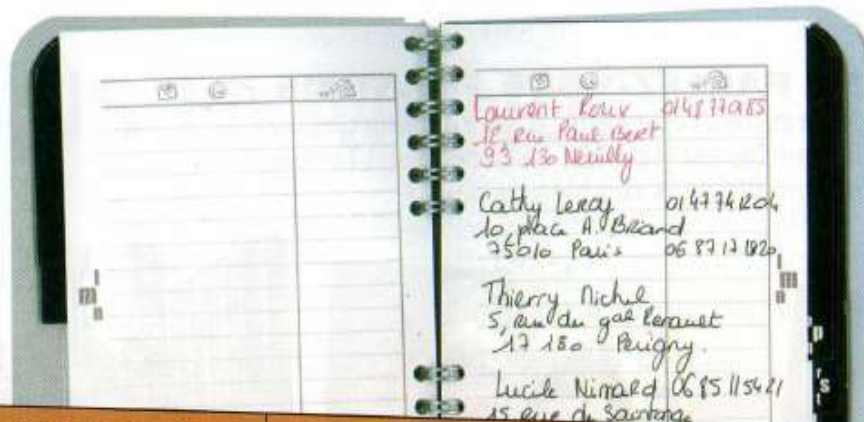 Laurent Roux 01 48 77 01 85
12, Rue Paul Bert
93 130 Neuilly
Cathy Leroy 01 47 74 12 04
10, place A. Briand
75010 Paris 06 87 17 1820
Thierry Michel
5, rue du gal
17 180 Périgny.
Lucile 06 85 115421
15 rue de
l
m
n
l
m
p
r
s
t